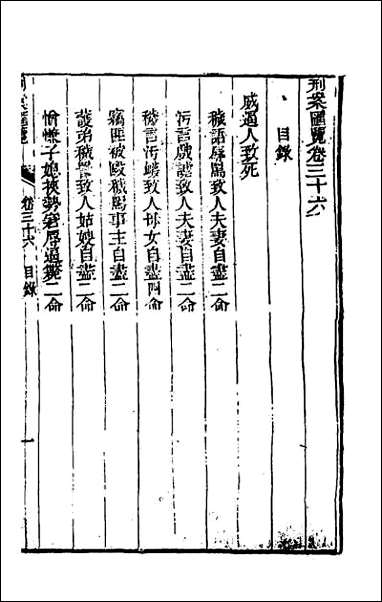 刑案匯覽卷三十六
目錄
威逼人致死
穢語辱罵致人夫妻自盡二命
污言戲謔致人夫妻自盡二命
穢言污衊致人母女自盡四命
竊匪被毆穢罵事主自盡二命
護弟穢詈致人姑嫂自盡二命
子媳被勢窘辱逼斃二命
刑案匯覽 卷三十六 目錄 一